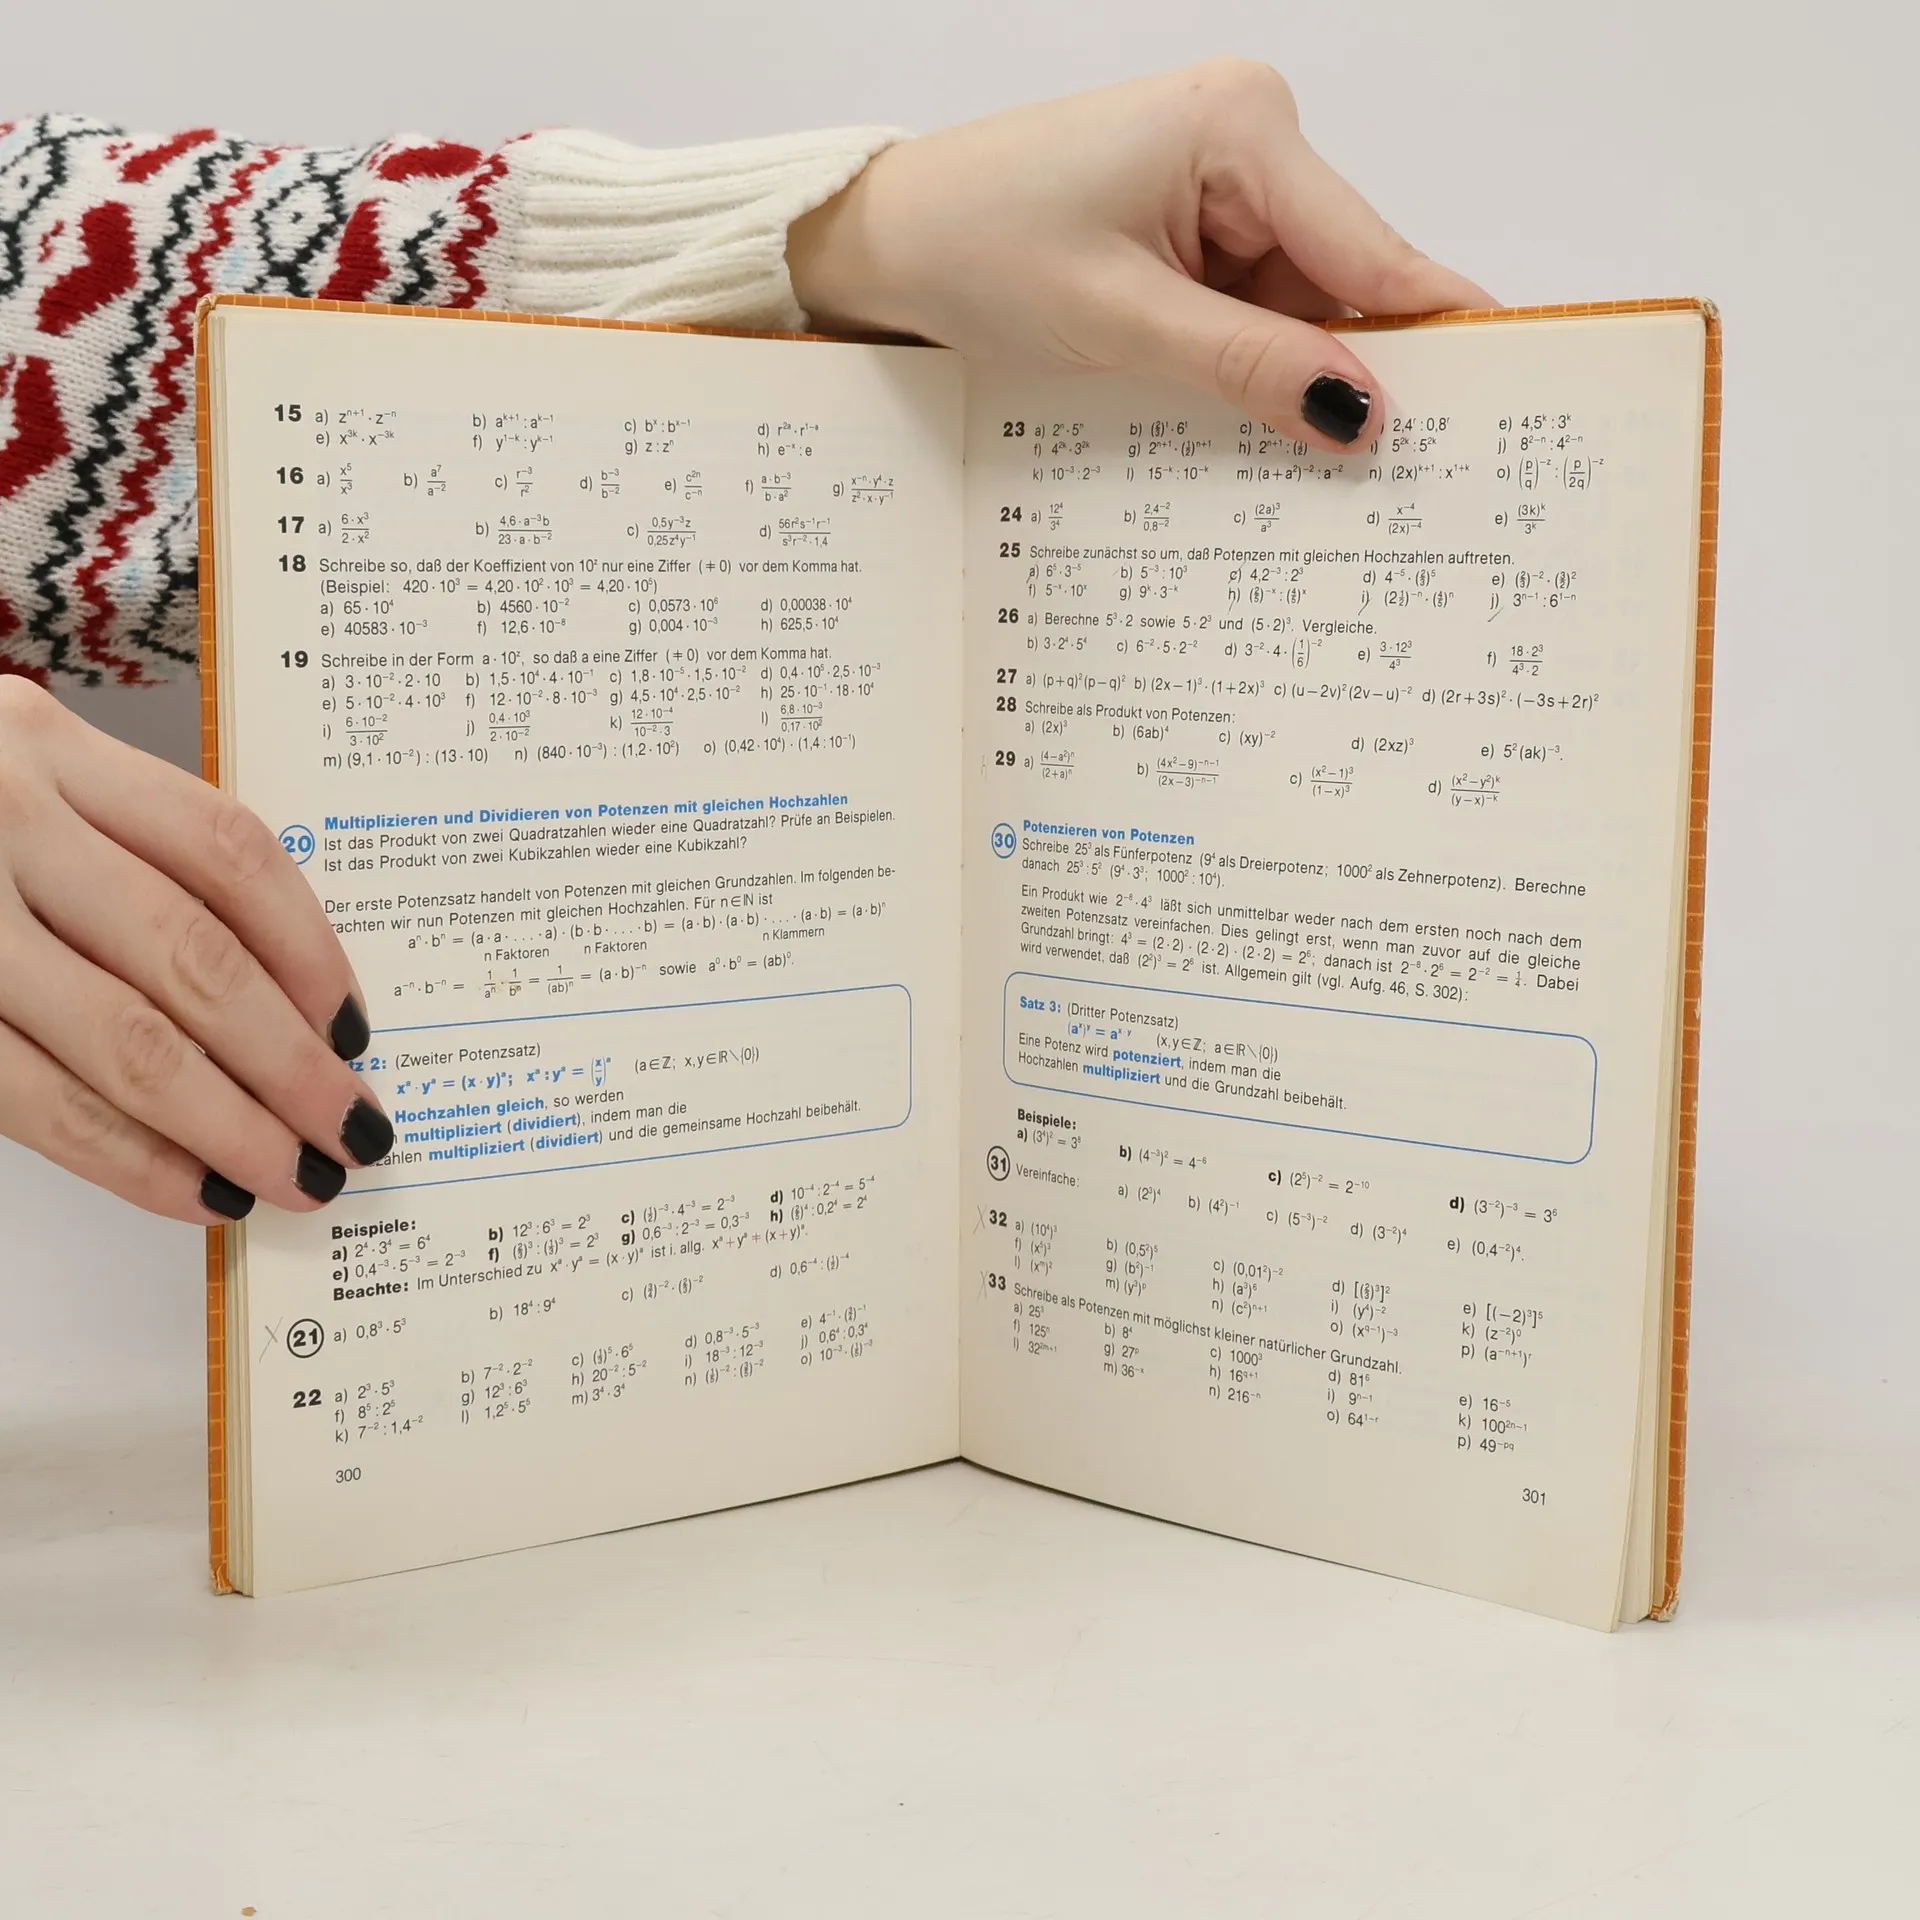 15 a) zⁿ⁺¹ · z⁻ⁿ b) aᵏ⁺¹ : aᵏ⁻¹ c) bˣ : bˣ⁻¹ d) r²ᵃ · r¹⁻ᵃ
e) x³ᵏ · x⁻³ᵏ f) y¹⁻ᵏ : yᵏ⁻¹ g) z : zⁿ h) e⁻ˣ : e
16 a) x⁵/x³ b) a⁷/a⁻² c) r⁻³/r² d) b⁻³/b⁻² e) c²ⁿ/c⁻ⁿ f) a·b⁻³/b·a² g) x⁻ⁿ·y⁴·z/z²·x·y⁻¹
17 a) 6·x³/2·x² b) 4,6·a⁻³b/23·a·b⁻² c) 0,5y⁻³z/0,25z⁴y⁻¹ d) 56r²s⁻¹r⁻¹/s³r⁻²·1,4
18 Schreibe so, daß der Koeffizient von 10ᶻ nur eine Ziffer (≠0) vor dem Komma hat.
(Beispiel: 420·10³ = 4,20·10²·10³ = 4,20·10⁵)
a) 65·10⁴ b) 4560·10⁻² c) 0,0573·10⁶ d) 0,00038·10⁴
e) 40583·10⁻³ f) 12,6·10⁻⁸ g) 0,004·10⁻³ h) 625,5·10⁴
19 Schreibe in der Form a·10ᶻ, so daß a eine Ziffer (≠0) vor dem Komma hat.
a) 3·10⁻²·2·10 b) 1,5·10⁴·4·10⁻¹ c) 1,8·10⁻⁵·1,5·10⁻² d) 0,4·10⁵·2,5·10⁻³
e) 5·10⁻²·4·10³ f) 12·10⁻²·8·10⁻³ g) 4,5·10⁴·2,5·10⁻² h) 25·10⁻¹·18·10⁴
i) 6·10⁻²/3·10² j) 0,4·10³/2·10⁻² k) 12·10⁻⁴/10⁻²·3 l) 6,8·10⁻³/0,17·10²
m) (9,1·10⁻²):(13·10) n) (840·10⁻³):(1,2·10²) o) (0,42·10⁴)·(1,4:10⁻¹)
Multiplizieren und Dividieren von Potenzen mit gleichen Hochzahlen
20 Ist das Produkt von zwei Quadratzahlen wieder eine Quadratzahl? Prüfe an Beispielen.
Ist das Produkt von zwei Kubikzahlen wieder eine Kubikzahl?
Der erste Potenzsatz handelt von Potenzen mit gleichen Grundzahlen. Im folgenden be-
rachten wir nun Potenzen mit gleichen Hochzahlen. Für n∈ℕ ist
aⁿ·bⁿ = (a·a·...·a)·(b·b·...·b) = (a·b)·(a·b)·...·(a·b) = (a·b)ⁿ
n Faktoren n Faktoren n Klammern
a⁻ⁿ·b⁻ⁿ = 1/aⁿ · 1/bⁿ = 1/(ab)ⁿ = (a·b)⁻ⁿ sowie a⁰·b⁰ = (ab)⁰.
tz 2: (Zweiter Potenzsatz)
xᵃ·yᵃ = (x·y)ᵃ; xᵃ:yᵃ = (x/y)ᵃ (a∈ℤ; x,y∈ℝ\{0})
Hochzahlen gleich, so werden
multipliziert (dividiert), indem man die
zahlen multipliziert (dividiert) und die gemeinsame Hochzahl beibehält.
Beispiele:
a) 2⁴·3⁴ = 6⁴ b) 12³:6³ = 2³ c) (1/2)⁻³·4⁻³ = 2⁻³ d) 10⁻⁴:2⁻⁴ = 5⁻⁴
e) 0,4⁻³·5⁻³ = 2⁻³ f) (2/3)³:(1/3)³ = 2³ g) 0,6⁻³:2⁻³ = 0,3⁻³ h) (2/5)⁴:0,2⁴ = 2⁴
Beachte: Im Unterschied zu xᵃ·yᵃ = (x·y)ᵃ ist i. allg. xᵃ+yᵃ ≠ (x+y)ᵃ.
21 a) 0,8³·5³ b) 18⁴:9⁴ c) d) 0,6⁻⁴:
22 a) 2³·5³ b) 7⁻²·2⁻² c) (1/3)⁵·6⁵ d) 0,8⁻³·5⁻³ e)
f) 8⁵:2⁵ g) 12³:6³ h) 20⁻²:5⁻² i) 18⁻³:12⁻³ j) 0,6⁴:0,3⁴
k) 7⁻²:1,4⁻² l) 1,2⁵·5⁵ m) 3⁴·3⁴ n) o)
300
23 a) 2ⁿ·5ⁿ b) c) 10 2,4ʳ:0,8ʳ e) 4,5ᵏ:3ᵏ
f) 4²ᵏ·3²ᵏ g) 2ⁿ⁺¹·(1/2)ⁿ⁺¹ h) 2ⁿ⁺¹: i) 5²ᵏ:5²ᵏ j) 8²⁻ⁿ:4²⁻ⁿ
k) 10⁻³:2⁻³ l) 15⁻ᵏ:10⁻ᵏ m) (a+a²)⁻²:a⁻² n) (2x)ᵏ⁺¹:x¹⁺ᵏ o) (p/q)⁻ᶻ:(p/2q)⁻ᶻ
24 a) 12⁴/3⁴ b) 2,4⁻²/0,8⁻² c) (2a)³/a³ d) x⁻⁴/(2x)⁻⁴ e) (3k)ᵏ/3ᵏ
25 Schreibe zunächst so um, daß Potenzen mit gleichen Hochzahlen auftreten.
a) 6⁵·3⁻⁵ b) 5⁻³:10³ c) 4,2⁻³:2³ d) 4⁻⁵·(2/3)⁵ e) (2/3)⁻²·(3/2)²
f) 5⁻ˣ·10ˣ g) 9ᵏ·3⁻ᵏ h) i) (2½)⁻ⁿ·(4/5)ⁿ j) 3ⁿ⁻¹:6¹⁻ⁿ
26 a) Berechne 5³·2 sowie 5·2³ und (5·2)³. Vergleiche.
b) 3·2⁴·5⁴ c) 6⁻²·5·2⁻² d) 3⁻²·4·(1/6)⁻² e) 3·12³/4³ f) 18·2³/4³·2
27 a) (p+q)²(p−q)² b) (2x−1)³·(1+2x)³ c) (u−2v)²(2v−u)⁻² d) (2r+3s)²·(−3s+2r)²
28 Schreibe als Produkt von Potenzen:
a) (2x)³ b) (6ab)⁴ c) (xy)⁻² d) (2xz)³ e) 5²(ak)⁻³.
29 a) (4−a²)ⁿ/(2+a)ⁿ b) (4x²−9)⁻ⁿ⁻¹/(2x−3)⁻ⁿ⁻¹ c) (x²−1)³/(1−x)³ d) (x²−y²)ᵏ/(y−x)⁻ᵏ
Potenzieren von Potenzen
30 Schreibe 25³ als Fünferpotenz (9⁴ als Dreierpotenz; 1000² als Zehnerpotenz). Berechne
danach 25³:5² (9⁴·3³; 1000²:10⁴).
Ein Produkt wie 2⁻⁸·4³ läßt sich unmittelbar weder nach dem ersten noch nach dem
zweiten Potenzsatz vereinfachen. Dies gelingt erst, wenn man zuvor auf die gleiche
Grundzahl bringt: 4³ = (2·2)·(2·2)·(2·2) = 2⁶; danach ist 2⁻⁸·2⁶ = 2⁻² = 1/4. Dabei
wird verwendet, daß (2²)³ = 2⁶ ist. Allgemein gilt (vgl. Aufg. 46, S. 302):
Satz 3: (Dritter Potenzsatz)
(aˣ)ʸ = aˣ·ʸ (x,y∈ℤ; a∈ℝ\{0})
Eine Potenz wird potenziert, indem man die
Hochzahlen multipliziert und die Grundzahl beibehält.
Beispiele:
a) (3⁴)² = 3⁸ b) (4⁻³)² = 4⁻⁶ c) (2⁵)⁻² = 2⁻¹⁰ d) (3⁻²)⁻³ = 3⁶
31 Vereinfache: a) (2³)⁴ b) (4²)⁻¹ c) (5⁻³)⁻² d) (3⁻²)⁴ e) (0,4⁻²)⁴.
32 a) (10⁴)³ b) (0,5²)⁵ c) (0,01²)⁻² d) [(2/3)³]² e) [(−2)³]⁵
f) (x⁵)³ g) (b²)⁻¹ h) (a³)⁶ i) (y⁴)⁻² k) (z⁻²)⁰
l) (xᵐ)² m) (y³)ᵖ n) (c²)ⁿ⁺¹ o) (x^(q−1))⁻³ p) (a⁻ⁿ⁺¹)ʳ
33 Schreibe als Potenzen mit möglichst kleiner natürlicher Grundzahl.
a) 25³ b) 8⁴ c) 1000³ d) 81⁶ e) 16⁻⁵
f) 125ⁿ g) 27ᵖ h) 16^(q+1) i) 9ⁿ⁻¹ k) 100²ⁿ⁻¹
l) 32²ᵐ⁺¹ m) 36⁻ˣ n) 216⁻ⁿ o) 64¹⁻ʳ p) 49^(−pq)
301